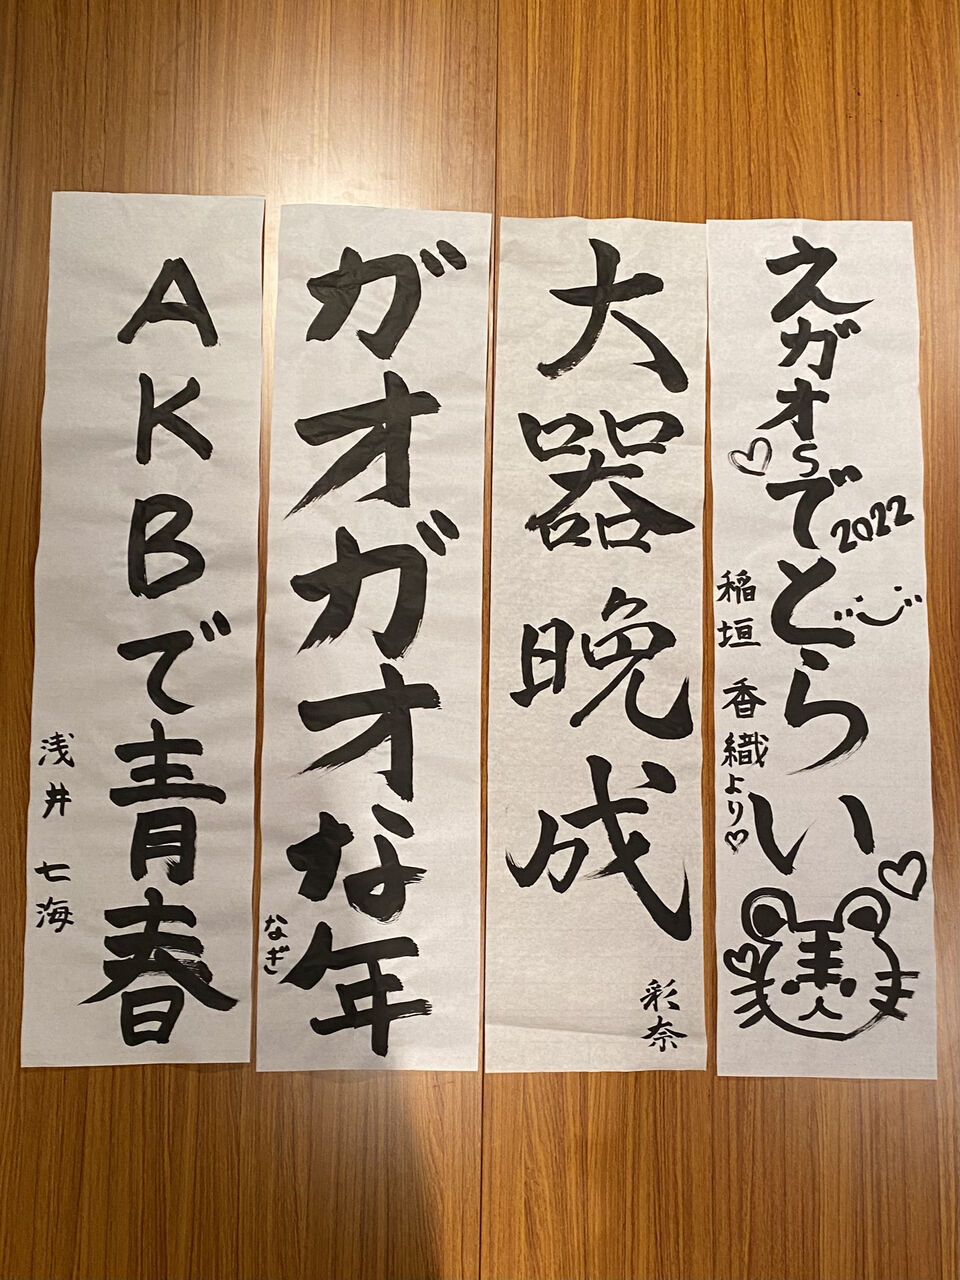 えガオらでどらい
2022
稲垣 香織より
大器晩成
彩奈
ガオガオな年
なぎ
AKBで青春
浅井 七海